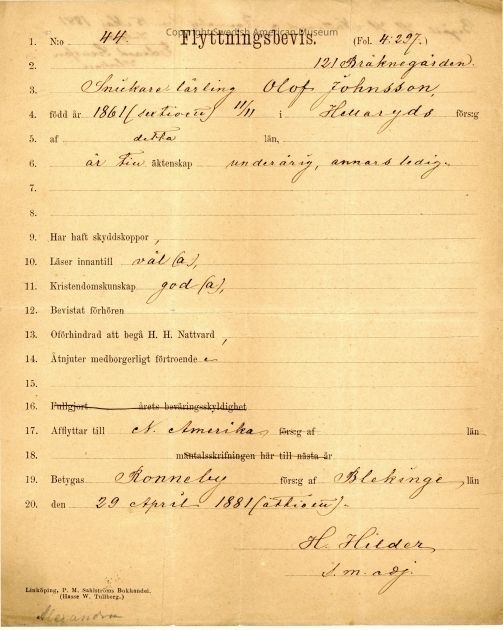 Copyright Swedish American Museum
1. N:o 44. Flyttningsbevis. (Fol. 4:297.)
2. 121 Bräknegården.
3. Snickare lärling Olof Johnsson
4. född år 1861 (sextioen) 11/11 i Hellaryds förs:g
5. af detta län,
6. är till äktenskap underårig, annars ledig.
7.
8.
9. Har haft skyddskoppor,
10. Läser innantill väl (a),
11. Kristendomskunskap god (a),
12. Bevistat förhören
13. Oförhindrad att begå H. H. Nattvard,
14. Åtnjuter medborgerligt förtroende
15.
16. Fullgjort årets beväringsskyldighet
17. Afflyttar till N. Amerika förs:g af län
18. mantalsskrifningen här till nästa år
19. Betygas Ronneby förs:g af Blekinge län
20. den 29 April 1881 (åttioen).
H. Hilder
s. m. adj.
Linköping, P. M. Sahlströms Bokhandel.
(Hasse W. Tullberg.)
Alexandra